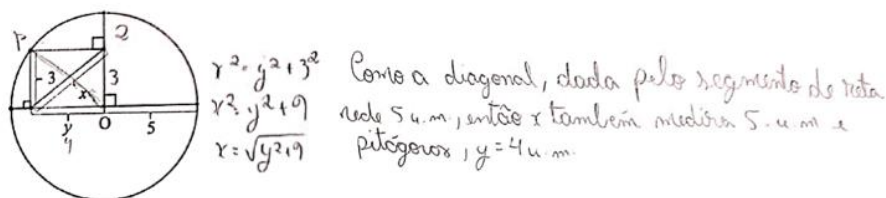 P
Q
3
3
x
y
4
O
5
x² = y² + 3²
x² = y² + 9
x = √y²+9
Como a diagonal, dada pelo segmento de reta
mede 5 u.m, então x também medira 5. u.m e
pitágoros, y = 4 u.m.